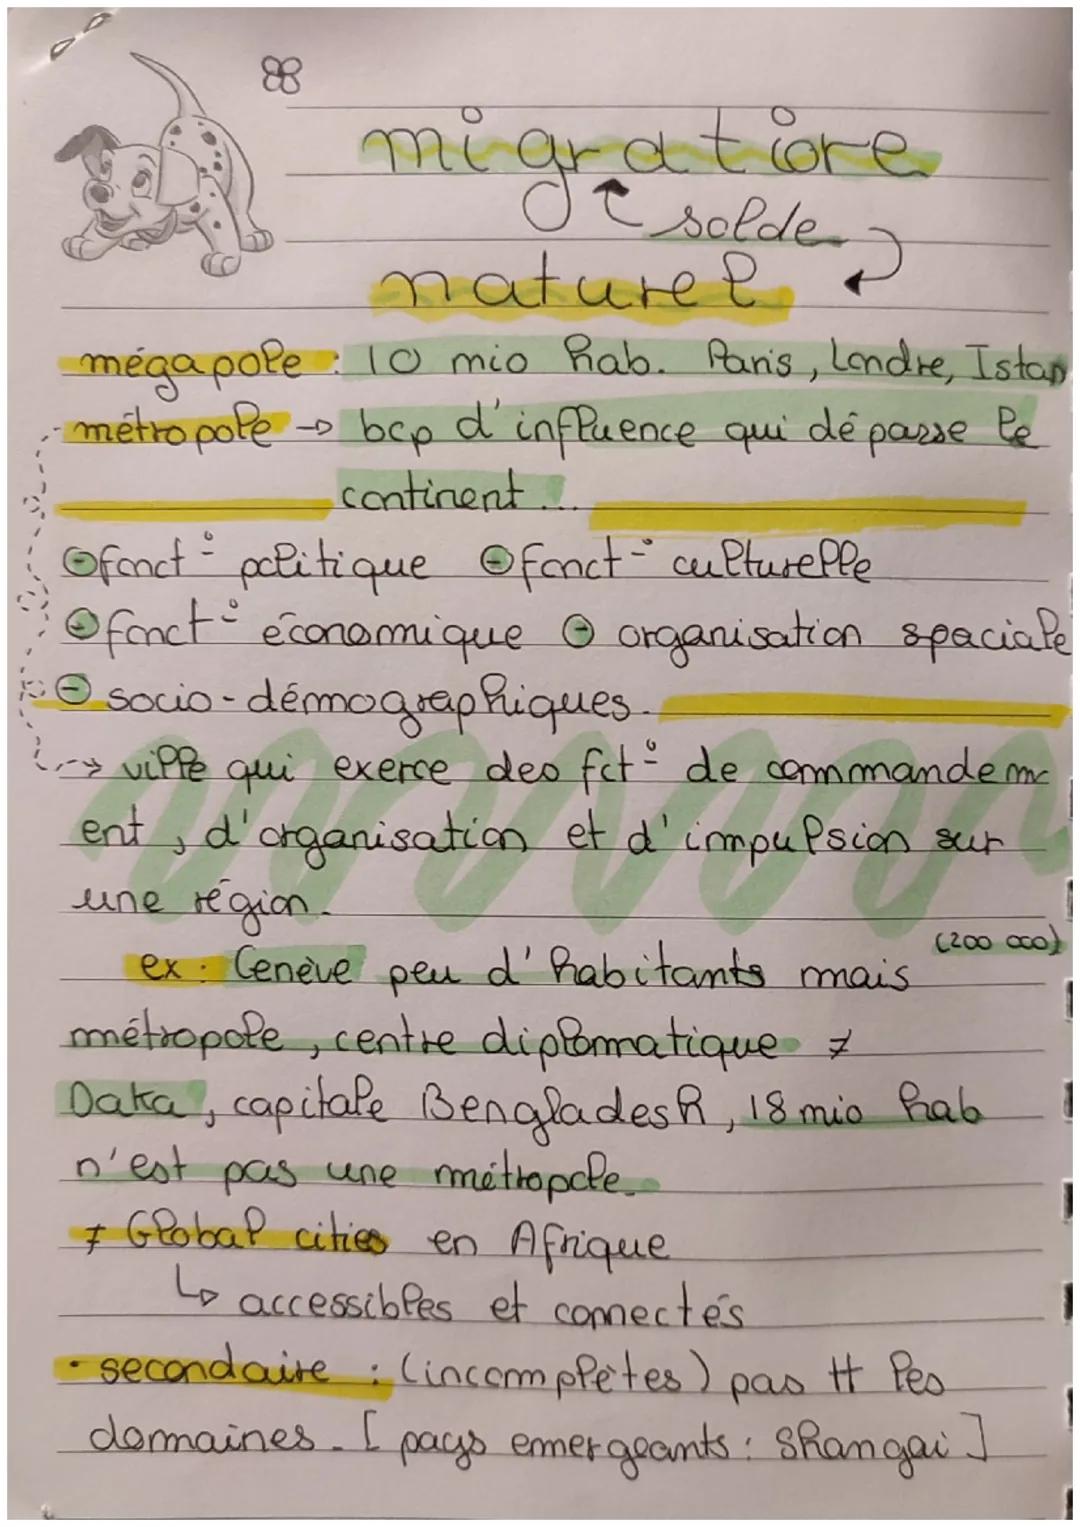 migratoire
solde
naturel
mégapole : 10 mio hab. Paris, Londre, Istan
métropole → bcp d'influence qui dépasse le
continent...
⊖ fonct° politique ⊖ fonct° culturelle
⊖ fonct° économique ⊖ organisation spaciale
⊖ socio-démographiques.
→ ville qui exerce des fct° de commandeme
ent, d'organisation et d'impulsion sur
une région.
(200 000)
ex : Genève peu d'habitants mais
métropole, centre diplomatique ≠
Daka, capitale Bengladesh, 18 mio hab
n'est pas une métropole.
≠ Global cities en Afrique
↳ accessibles et connectés
• secondaire : (incomplètes) pas tt les
domaines. [pays emergeants : Shangai]